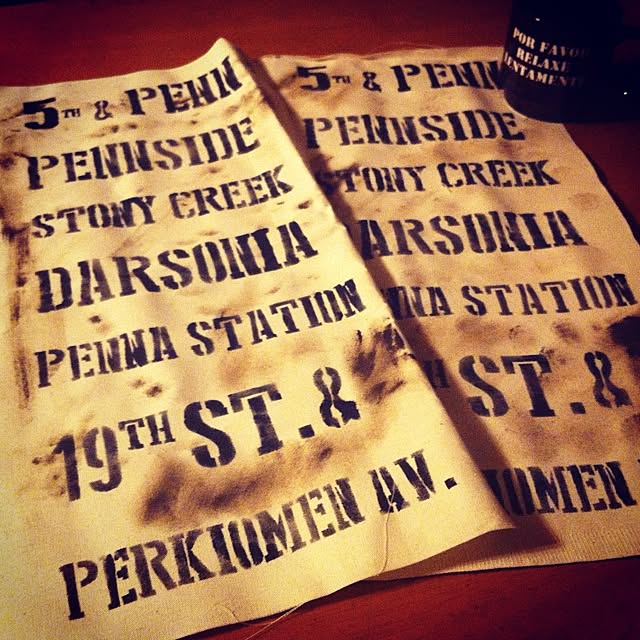 5TH & PENN
PENNSIDE
STONY CREEK
DARSONIA
PENNA STATION
19TH ST. &
PERKIOMEN AV.
5TH & PENN
PENNSIDE
STONY CREEK
ARSONIA
NA STATION
H ST. &
IOMEN
POR FAVO
RELAXE
ENTAMENT